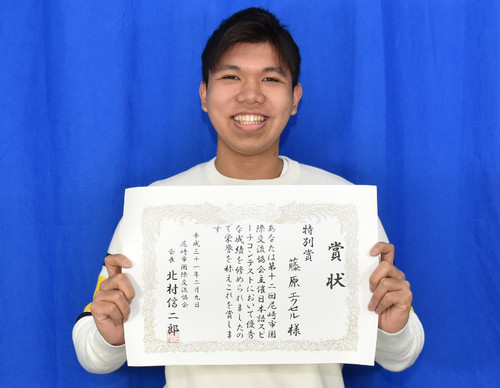 賞状
特別賞
藤原 エクセル 様
あなたは第十二回尼崎市国
際交流協会主催日本語スピ
ーチコンテストにおいて優秀
な成績を修められましたの
で栄誉を称えこれを賞しま
す
平成三十一年二月九日
尼崎市国際交流協会
会長 北村信二郎